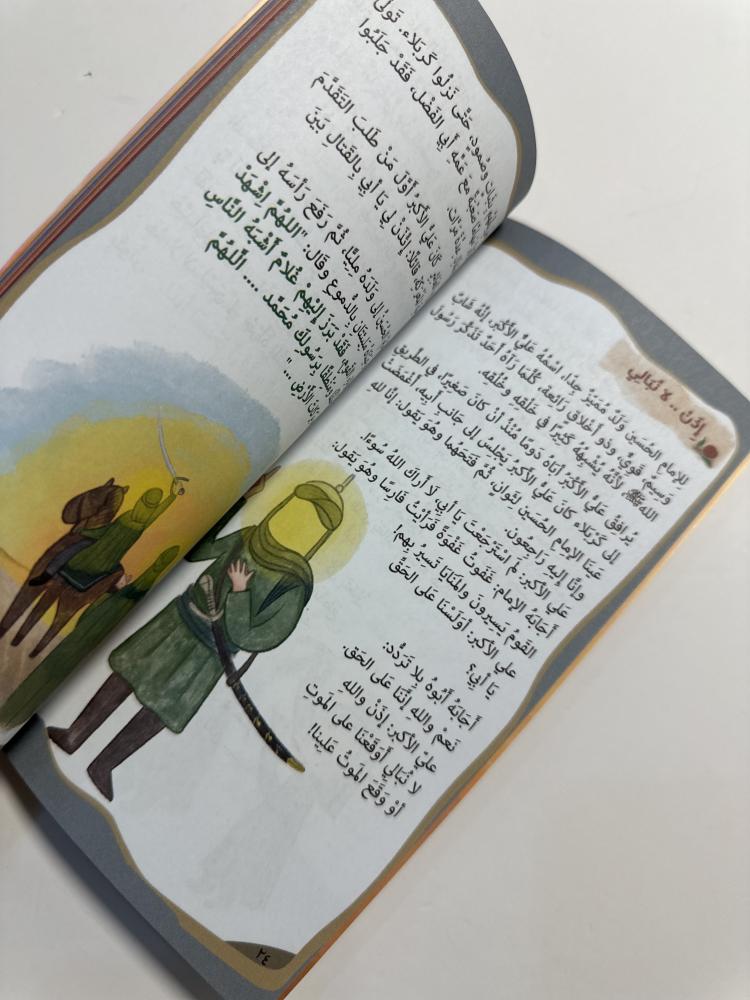 إِذَنْ .. لا نُبَالِي
لِلإمامِ الحُسَينِ وَلَدٌ مُمَيَّزٌ جِدًّا، اسْمُهُ عَلِيٌّ الأَكْبَر، إِنَّهُ شَابٌّ
وَسِيمٌ، قَوِيٌّ، وَذُو أَخْلاقٍ رَائِعَة، كُلَّمَا رَآهُ أَحَدٌ تَذَكَّرَ رَسُولَ
اللهِ ﷺ لِأَنَّهُ يُشْبِهُهُ كَثِيرًا فِي خَلْقِهِ وَخُلُقِهِ.
يُرَافِقُ عَلِيٌّ الأَكْبَرُ أَبَاهُ دَومًا مُنْذُ أَنْ كَانَ صَغِيرًا، فِي الطَّرِيقِ
إِلى كَرْبَلاءِ، كَانَ عَلِيٌّ الأَكْبَرُ يَجْلِسُ إِلى جَانِبِ أَبِيهِ، أُغْمِضَتْ
عَينَا الإمامِ الحُسَينِ لِثَوَانٍ، ثُمَّ فَتَحَهُما وَهُوَ يَقولُ: إِنَّا لِلهِ
وَإِنَّا إِلَيهِ رَاجِعون.
عَلِيٌّ الأَكبر: لِمَ اسْتَرْجَعْتَ يَا أَبِي، لا أَرَاكَ اللهُ سُوءًا.
أَجَابَهُ الإمام: غَفَوتُ غَفْوَةً فَرَأَيْتُ فَارِسًا وَهُوَ يَقول:
القَومُ يَسِيرونَ والمَنَايَا تَسِيرُ بِهِم!
عَلِيٌّ الأكبر: أَوَلَسْنَا عَلَى الحَقِّ
يَا أَبِي؟
أَجَابَهُ أَبُوهُ بِلا تَرَدُّد:
نَعَمْ وَاللهِ إِنَّنَا عَلَى الحَق.
عَلِيٌّ الأكبر: إِذَنْ وَاللهِ
لا نُبَالِي أَوَقَعْنَا عَلَى المَوتِ
أَوْ وَقَعَ المَوتُ عَلَينا!
٢٤
وَصُمود، حَتَّى نَزَلُوا كَرْبَلاء. تَوَلَّى
مَعَ عَمِّهِ أَبِي الفَضْلِ، فَقَدْ جَلَبُوا
كَانَ عَلِيٌّ الأَكبَرُ أَوَّلَ مَنْ طَلَبَ التَّقَدُّمَ
قَائِلًا: إِئْذَنْ لِي يَا أَبِي بِالقِتَالِ بَينَ
إِلى وَلَدِهِ مَلِيًّا، ثُمَّ رَفَعَ رَأْسَهُ إِلى
بِالدُّموعِ وَقَالَ: "اللهُمَّ اشْهَدْ
فَقَدْ بَرَزَ إِلَيهِمْ غُلامٌ أَشْبَهُ النَّاسِ
بِرَسُولِكَ مُحَمَّد .... اللهُمَّ
الأَرْضِ ..."